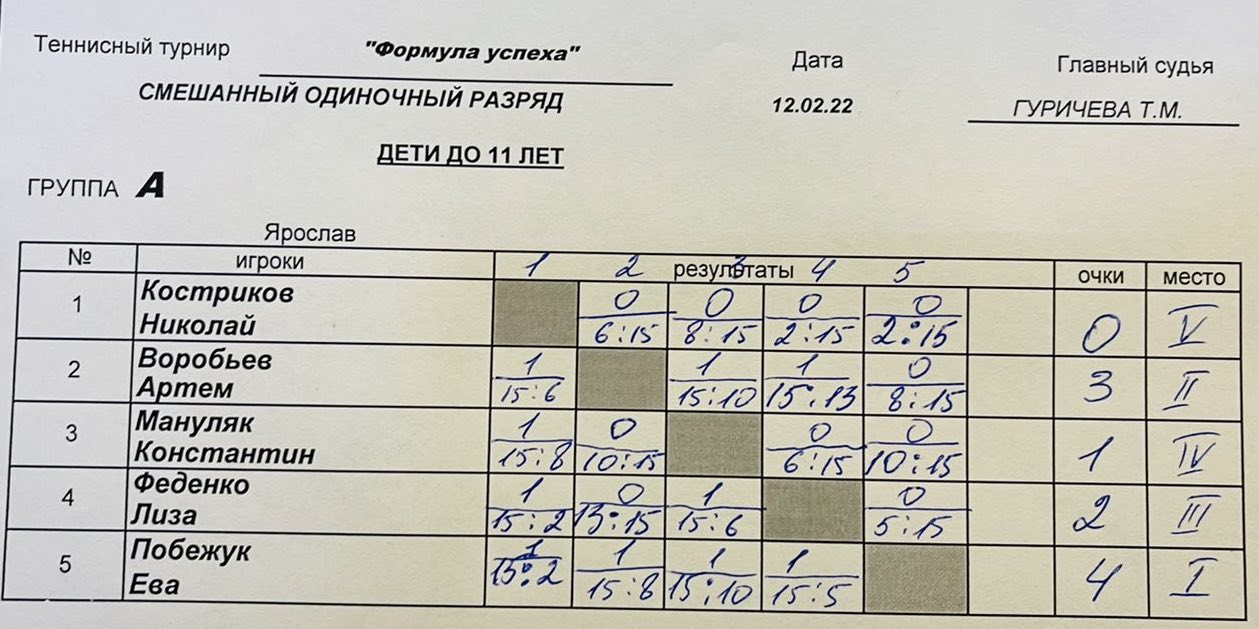 Теннисный турнир "Формула успеха" Дата Главный судья
СМЕШАННЫЙ ОДИНОЧНЫЙ РАЗРЯД 12.02.22 ГУРИЧЕВА Т.М.
ДЕТИ ДО 11 ЛЕТ
ГРУППА А
Ярослав
№ игроки 1 2 результаты 3 4 5 очки место
1 Костриков 0 0 0 0
Николай 6:15 8:15 2:15 2:15 0 V
2 Воробьев 1 1 1 0
Артем 15:6 15:10 15:13 8:15 3 II
3 Мануляк 1 0 0 0
Константин 15:8 10:15 6:15 10:15 1 IV
4 Феденко 1 0 1 0
Лиза 15:2 13:15 15:6 5:15 2 III
5 Побежук 1 1 1 1
Ева 15:2 15:8 15:10 15:5 4 I